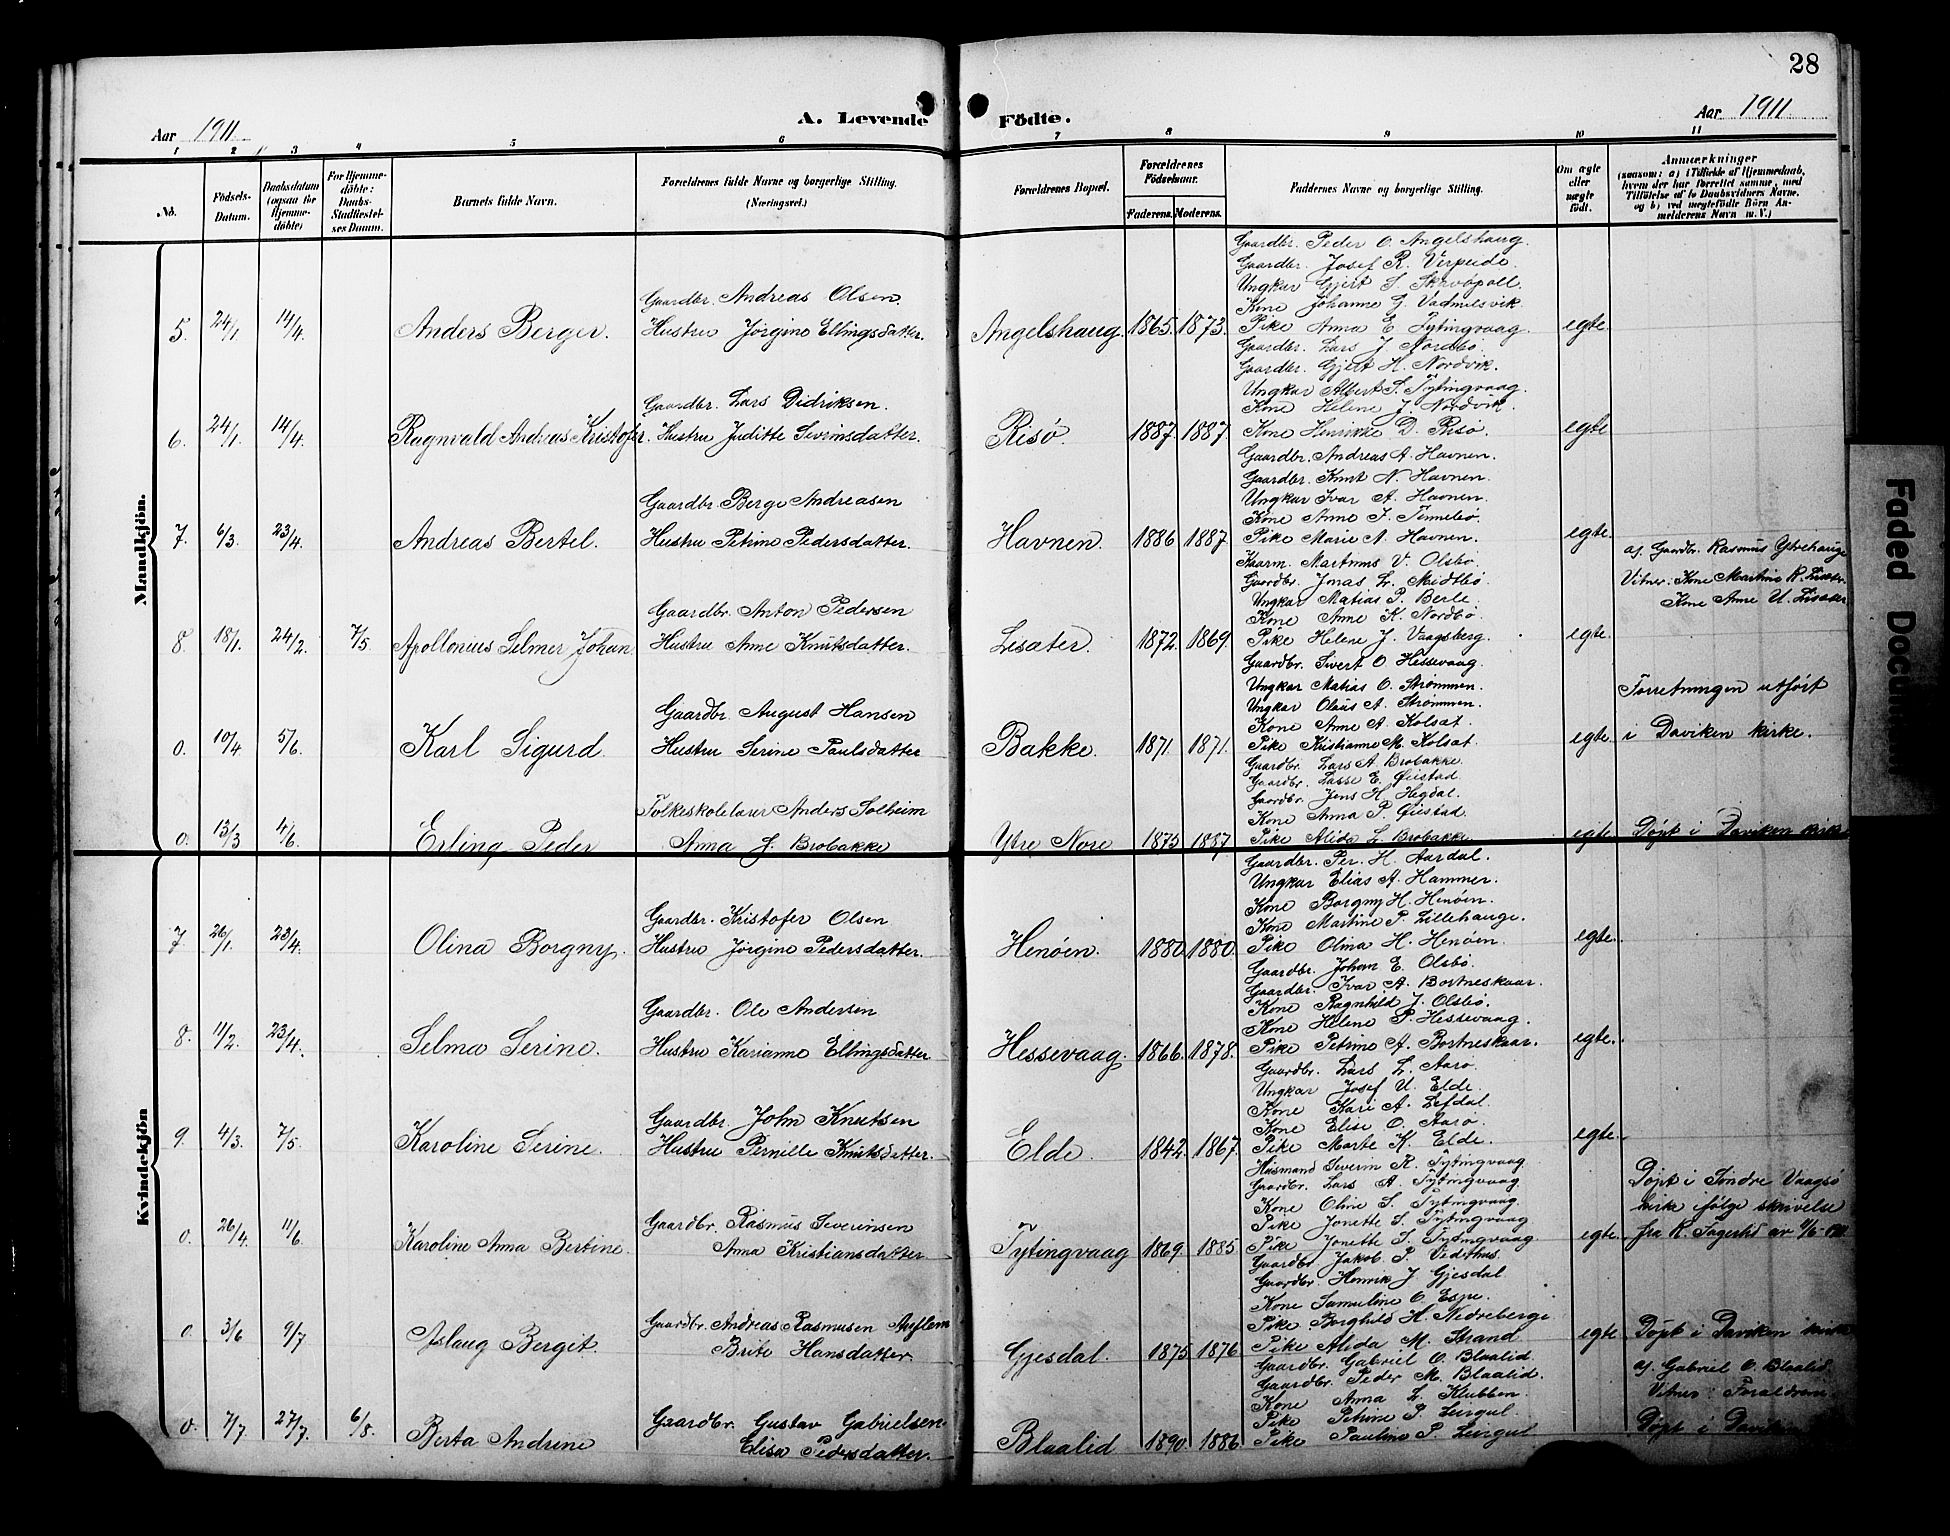 28
Aar 1911
A. Levende Fødte.
Aar 1911
1 2 3 4 5 6 7 8 9 10 11
No.
Fødsels-Datum.
Daabsdatum (ogsaa for Hjemmedøbte)
For Hjemmedøbte: Daabs-Stadfæstelses Datum.
Barnets fulde Navn.
Forældrenes fulde Navne og borgerlige Stilling. (Næringsvei.)
Forældrenes Bopæl.
Forældrenes Fødselsaar.
Faderens. Moderens.
Faddernes Navne og borgerlige Stilling.
Om ægte eller uægte født.
Anmærkninger
(saasom: a) i Tilfælde af Hjemmedaab,
hvem der har forrettet samme, med
Tilføielse af to Daabsvidners Navne,
og b) ved uægtefødte Børn An-
melderens Navn m. V.)
Mandkjön.
Gaardbr. Peder O. Angelshaug.
Gaardbr. Josef R. Verpeide.
Ungkar Gjert S. Skavøpoll.
Gaardbr. Andreas Olsen.
Kone Johanne G. Vadmelsvik
5. 24/1 14/4. Anders Berger. Hustru Jørgine Ellingsdatter. Angelshaug. 1865. 1873. Pike Anna E. Tytingvaag. egte.
Gaardbr. Lars J. Nordbø.
Gaardbr. Gjert H. Nordvik.
Ungkar Albert S. Tytingvaag.
Gaardbr. Lars Didriksen.
Kone Helene J. Nordvik.
6. 24/1. 14/4. Ragnvald Andreas Kristofer. Hustru Juditte Severinsdatter. Risø. 1887. 1887. Kone Henrikke D. Risø. egte
Gaardbr. Andreas A. Havnen.
Gaardbr. Knut N. Havnen.
Gaardbr. Berge Andreasen
Ungkar Ivar A. Havnen.
Kone Anne J. Tennebø.
7. 6/3 23/4. Andreas Bertel. Hustru Petrine Pedersdatter. Havnen. 1886 1887 Pike Marie A. Havnen. egte.
Kaarm. Martinus V. Olsbø. af. Gaardbr. Rasmus Ytrehauge
Gaardbr. Jonas L. Midtbø. Vitner: Kone Martine R. Lisæter
Gaardbr. Anton Pedersen
Ungkar Matias P. Berle. Kone Anne U. Lisæter
Kone Anne K. Nordbø.
8. 18/1. 24/2. 7/5. Apollonius Selmer Johan. Hustru Anne Knutsdatter. Lisæter. 1872. 1869. Pike Helene J. Vaagsberg. egte.
Gaardbr. Sivert O. Hessevaag.
Ungkar Matias O. Strømmen. Forretningen utført
Gaardbr. August Hansen
Ungkar Olaus A. Strømmen.
Kone Anne A. Kolsæt.
0. 10/4 5/6. Karl Sigurd Hustru Serine Paulsdatter Bakke. 1871. 1871. Pike Kristianne M. Kolsæt. egte. i Daviken kirke.
Gaardbr. Lars A. Brobakke.
Gaardbr. Lasse E. Øiestad.
Gaardbr. Jens H. Hegdal.
Folkeskolelærer Anders Solheim
Kone Anna P. Øiestad.
0. 13/3 4/6. Erling Peder Anna J. Brobakke Ytre Nore 1875 1887 Pike Alida L. Brobakke egte Døpt i Daviken kirke
Kvindekjön
Gaardbr. Per. H. Aardal.
Ungkar Elias A. Hammer.
Kone Borgny H. Henøen.
Gaardbr. Kristofer Olsen
Kone Martine P. Lillehauge.
7. 26/1. 23/4. Olina Borgny. Hustru Jørgine Pedersdatter. Henøen. 1880. 1880. Pike Olina H. Henøen. egte.
Gaardbr. Johan E. Olsbø.
Gaardbr. Ivar A. Bortneskaar.
Gaardbr. Ole Andersen
Kone Ragnhild J. Olsbø.
Kone Helene P. Hessevaag.
8. 11/2. 23/4. Selma Serine. Hustru Karianne Ellingsdatter Hessevaag. 1866. 1878. Pike Petrine A. Bortneskaar. egte.
Gaardbr. Lars L. Aarø.
Ungkar Josef U. Elde.
Gaardbr. John Knutsen
Kone Kari A. Lefdal.
Kone Elise O. Aarø.
9. 4/3. 7/5. Karoline Serine. Hustru Pernille Knutsdatter. Elde. 1842. 1867. Pike Marte K. Elde. egte.
Husmand Severin R. Tytingvaag
Gaardbr. Lars A. Tytingvaag. Døpt i Søndre Vaagsø
Kone Oline S. Tytingvaag. kirke ifølge skrivelse
Gaardbr. Rasmus Severinsen
Pike Jonette S. Tytingvaag
0. 26/4 11/6. Karoline Anna Bertine. Anna Kristiansdatter Tytingvaag 1869. 1885 Pike Jonette S. Tytingvaag. egte. fra K.
Gaardbr Jakob P. Vedthus.
Gaardbr. Henrik J. Gjesdal
Kone Samueline O. Espe.
Gaardbr. Andreas Rasmusen
Pike Borghild H. Nedreberge
0. 3/6 9/7. Aslaug Bergit. Brite Hansdatter. Gjesdal. 1875 1876 Pike Alida M. Strand egte Døpt i Daviken kirke
Gaardbr. Gabriel O. Blaalid af. Gabriel O. Blaalid.
Gaardbr. Peder M. Blaalid. Vitner: Forældrene
Kone Anna L. Klubben.
Gaardbr. Gustav Gabrielsen
Pike Petrine P. Leirgul.
0. 7/7 27/7. 6/8. Berta Andrine Elisa Pedersdatter. Blaalid 1890. 1886 Pike Pauline P. Leirgul Døpt i Daviken
Faded Document